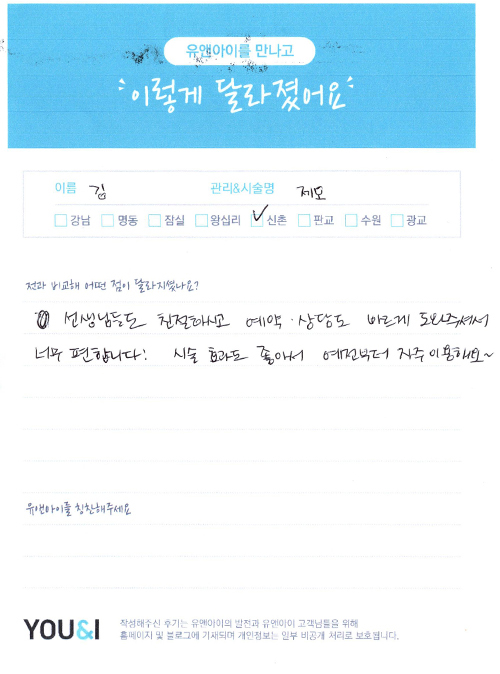 유앤아이를 만나고
이렇게 달라졌어요
이름 김 관리&시술명 제모
강남 명동 잠실 왕십리 신촌 판교 수원 광교
전과 비교해 어떤 점이 달라지셨나요?
선생님들도 친절하시고 예약·상담도 빠르게 도와주셔서
너무 편합니다! 시술 효과도 좋아서 예전부터 자주 이용해요~
유앤아이를 칭찬해주세요
YOU&I
작성해주신 후기는 유앤아이의 발전과 유앤아이 고객님들을 위해
홈페이지 및 블로그에 기재되며 개인정보는 일부 비공개 처리로 보호됩니다.